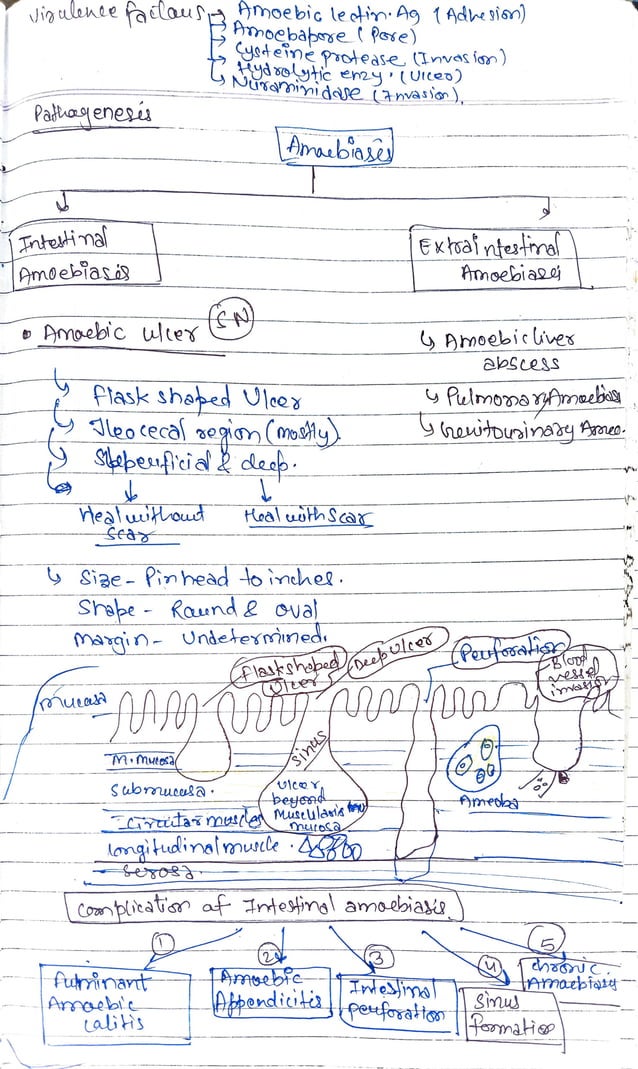 Virulence factors → Amoebic lectin Ag (Adhesion)
→ Amoebapore (Pore)
→ Cysteine protease (Invasion)
→ Hydrolytic enzy. (Ulcer)
→ Nuraminidase (Invasion).
Pathogenesis
Amaebiasis
Intestinal
Amoebiasis
Extraintestinal
Amoebiases
• Amaebic ulcer (SN)
↳ Amoebic liver
abscess
↳ Pulmonary Amoebias
↳ Genitourinary Amo.
↳ flask shaped Ulcer
↳ Ileocecal region (mostly).
↳ Superficial & deep.
Heal without
scar
Heal with scar
↳ Size - Pinhead to inches.
Shape - Round & oval
Margin - Undetermined.
Flask shaped
Ulcer
Deep Ulcer
Perforation
Blood
vessel
invasion
Mucasa
M. mucosa
Submucasa.
Circular muscles
longitudinal muscle.
Serosa
Sinus
Ulcer
beyond
Muscularis
mucosa
Ameoba
Complication of Intestinal amoebiasis.
① Fulminant
Amaebic
calitis
② Amaebic
Appendicitis
③ Intestinal
peuforation
④ Sinus
formation
⑤ chronic.
Amaebiasis